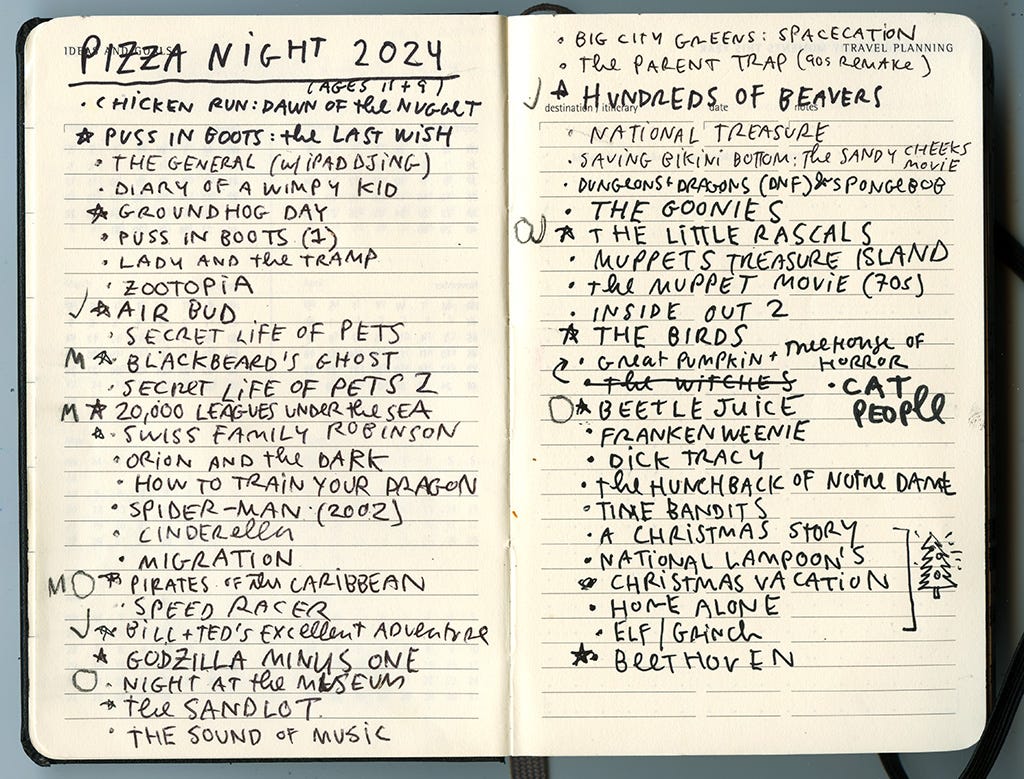 IDEAS AND GOALS
PIZZA NIGHT 2024
(AGES 11+9)
• CHICKEN RUN: DAWN OF the NUGGET
★ PUSS IN BOOTS: the LAST WISH
• THE GENERAL (W/IPAD DJING)
• DIARY OF A WIMPY KID
★ GROUNDHOG DAY
• PUSS IN BOOTS (1)
• LADY AND the TRAMP
• ZOOTOPIA
✓ ★ AIR BUD
• SECRET LIFE OF PETS
M ★ BLACKBEARD'S GHOST
• SECRET LIFE OF PETS 2
M ★ 20,000 LEAGUES UNDER the SEA
★ SWISS FAMILY ROBINSON
• ORION AND the DARK
• HOW TO TRAIN YOUR DRAGON
• SPIDER-MAN (2002)
• CINDERella
• MIGRATION
M O ★ PIRATES OF the CARIBBEAN
• SPEED RACER
✓ ★ BILL+TED'S EXCELLENT ADVENTURE
★ GODZILLA MINUS ONE
O • NIGHT AT the MUSEUM
★ the SANDLOT
• THE SOUND OF MUSIC
• BIG CITY GREENS: SPACECATION
TRAVEL PLANNING
• the PARENT TRAP (90s REMAKE)
✓ ★ HUNDREDS OF BEAVERS
destination / itinerary date notes
• NATIONAL TREASURE
• SAVING BIKINI BOTTOM: the SANDY CHEEKS MOVIE
• DUNGEONS+DRAGONS (DNF) & SPONGEBOB
• THE GOONIES
O ✓ ★ THE LITTLE RASCALS
• MUPPETS TREASURE ISLAND
• the MUPPET MOVIE (70s)
• INSIDE OUT 2
★ THE BIRDS
• GREAT PUMPKIN + TREEHOUSE OF HORROR
• the WITCHES
• CAT PEOPLE
O ★ BEETLEJUICE
• FRANKENWEENIE
• DICK TRACY
• the HUNCHBACK OF NOTRE DAME
• TIME BANDITS
• A CHRISTMAS STORY
• NATIONAL LAMPOON'S
• CHRISTMAS VACATION
• HOME ALONE
• ELF/GRINCH
★ BEETHOVEN